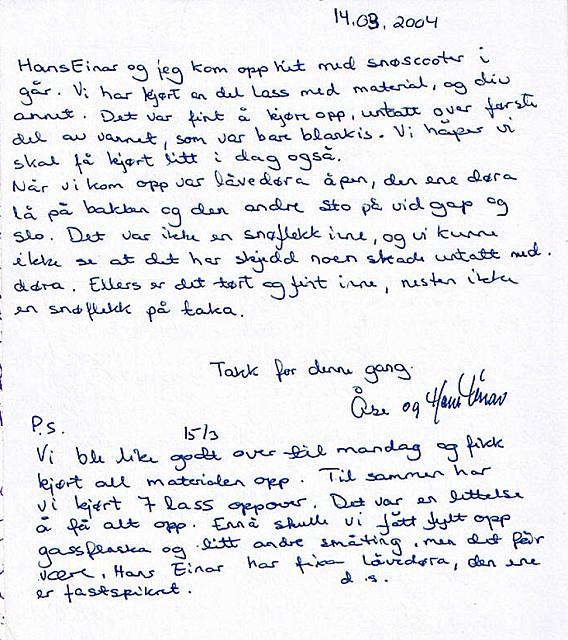 14.03.2004
Hans Einar og jeg kom opp hit med snøscooter i
går. Vi har kjørt en del lass med material, og div
annet. Det var fint å kjøre opp, untatt over første
del av vannet, som var bare blankis. Vi håper vi
skal få kjørt litt i dag også.
Når vi kom opp var låvedøra åpen, den ene døra
lå på bakken og den andre sto på vid gap og
slo. Det var ikke en snøflekk inne, og vi kunne
ikke se at det har skjedd noen skade untatt med
døra. Ellers er det tørt og fint inne, nesten ikke
en snøflekk på taka.
Takk for denne gang.
Åse og Hans Einar
P.s.
15/3
Vi ble like godt over til mandag og fikk
kjørt all materialen opp. Til sammen har
vi kjørt 7 lass oppover. Det var en lettelse
å få alt opp. Ennå skulle vi fått fylt opp
gassflaska og litt andre småting, men det får
være. Hans Einar har fixa låvedøra, den ene
er fastspikret. d.s.